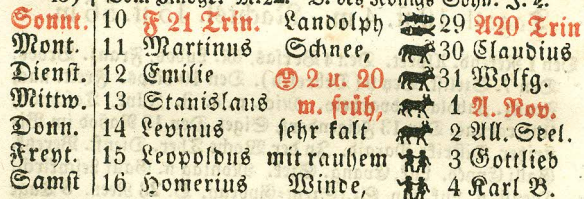 Sonnt. 10 F 21 Trin. Landolph 29 A20 Trin
Mont. 11 Martinus Schnee, 30 Claudius
Dienst. 12 Emilie 2 u. 20 31 Wolfg.
Mittw. 13 Stanislaus m. früh, 1 A. Nov.
Donn. 14 Levinus sehr kalt 2 All. Seel.
Freyt. 15 Leopoldus mit rauhem 3 Gottlieb
Samst 16 Homerius Winde, 4 Karl B.